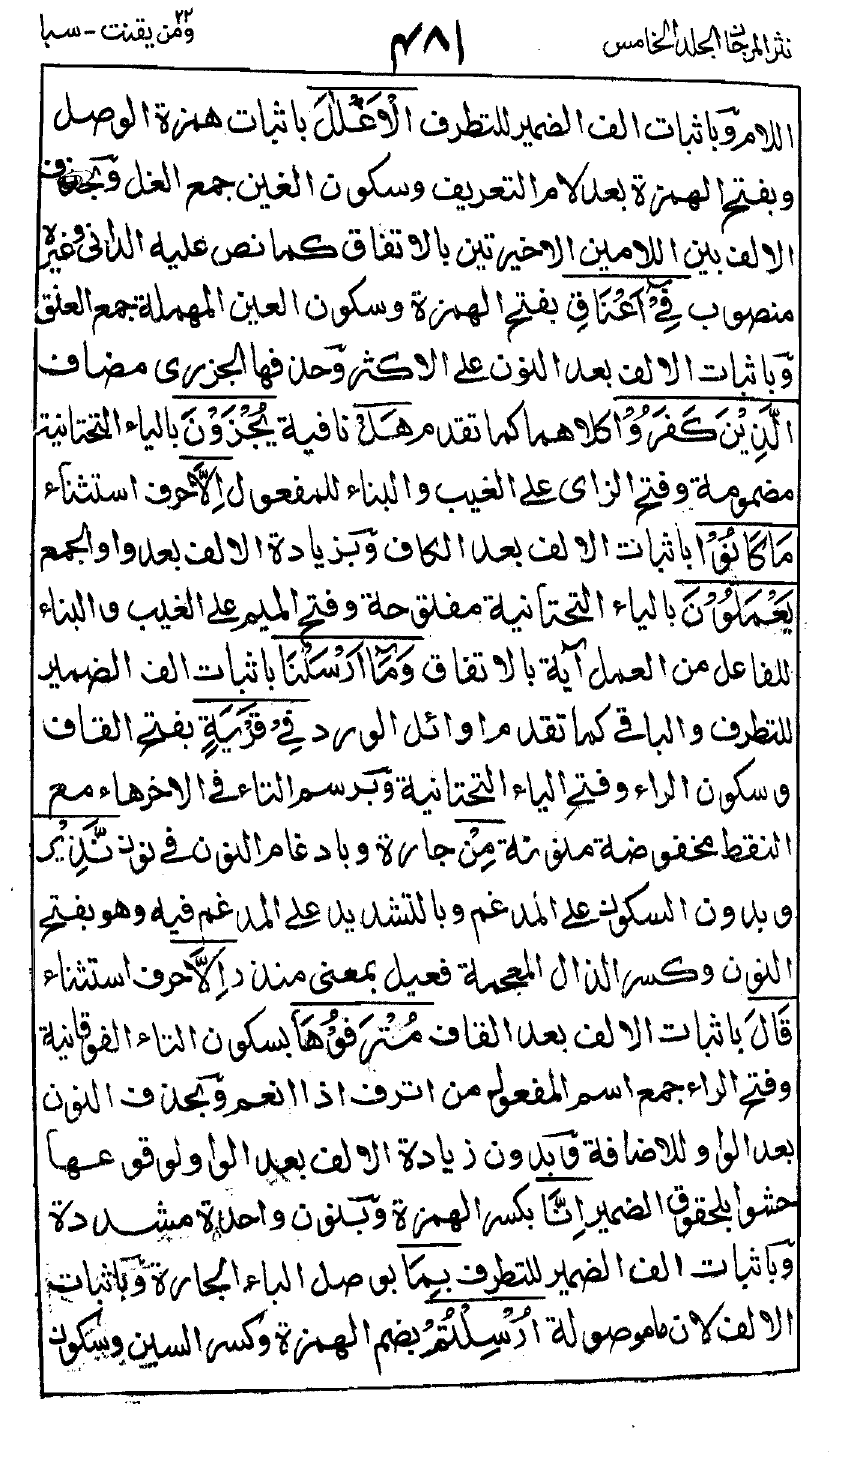 نثر المرجان المجلد الخامس
٤٨١
٢٢
ومن يقنت - سبا
اللام وَبا ثبات الف الضمير للتطرف الْاَغْلٰلَ باثبات همزة الوصل
وبفتح الهمزة بعد لام التعريف وسكون الغين جمع الغل وَبحذف
الالف بين اللامين الاخيرتين بالاتفاق كما نص عليه الدانى وغيره
منصوب فِيْٓ اَعْنَاقِ بفتح الهمزة وسكون العين المهملة جمع العنق
وَباثبات الالف بعد النون على الاكثر وَحذفها الجزرى مضاف
الَّذِيْنَ كَفَرُوْا كلاهما كما تقدم هَلْ نافية يُجْزَوْنَ بالياء التحتانية
مضمومة وفتح الزاى على الغيب والبناء للمفعول اِلَّا حرف استثناء
مَا كَانُوْا باثبات الالف بعد الكاف وَبزيادة الالف بعد واو الجمع
يَعْمَلُوْنَ بالياء التحتانية مفتوحة وفتح الميم على الغيب والبناء
للفاعل من العمل آية بالاتفاق وَمَآ اَرْسَلْنَا باثبات الف الضمير
للتطرف والباقى كما تقدم اوائل الورد فِيْ قَرْيَةٍ بفتح القاف
وسكون الراء وفتح الياء التحتانية وَبرسم التاء فى الاخر هاء مع
النقط مخفوضة منونة مِنْ جارة وبادغام النون فى نون نَّذِيْرٍ
وبدون السكون على المدغم وبالتشديد على المدغم فيه وهو بفتح
النون وكسر الذال المعجمة فعيل بمعنى منذر اِلَّا حرف استثناء
قَالَ باثبات الالف بعد القاف مُتْرَفُوْهَا بسكون التاء الفوقانية
وفتح الراء جمع اسم المفعول من اترف اذا انعم وَبحذف النون
بعد الواو للاضافة وَبدون زيادة الالف بعد الواو لوقوعها
حشوا بلحقوق الضمير اِنَّا بكسر الهمزة وَبنون واحدة مشددة
وَباثبات الف الضمير للتطرف بِمَا بوصل الباء الجارة وَباثبات
الالف لان ما موصولة اُرْسِلْتُمْ بضم الهمزة وكسر السين وسكون